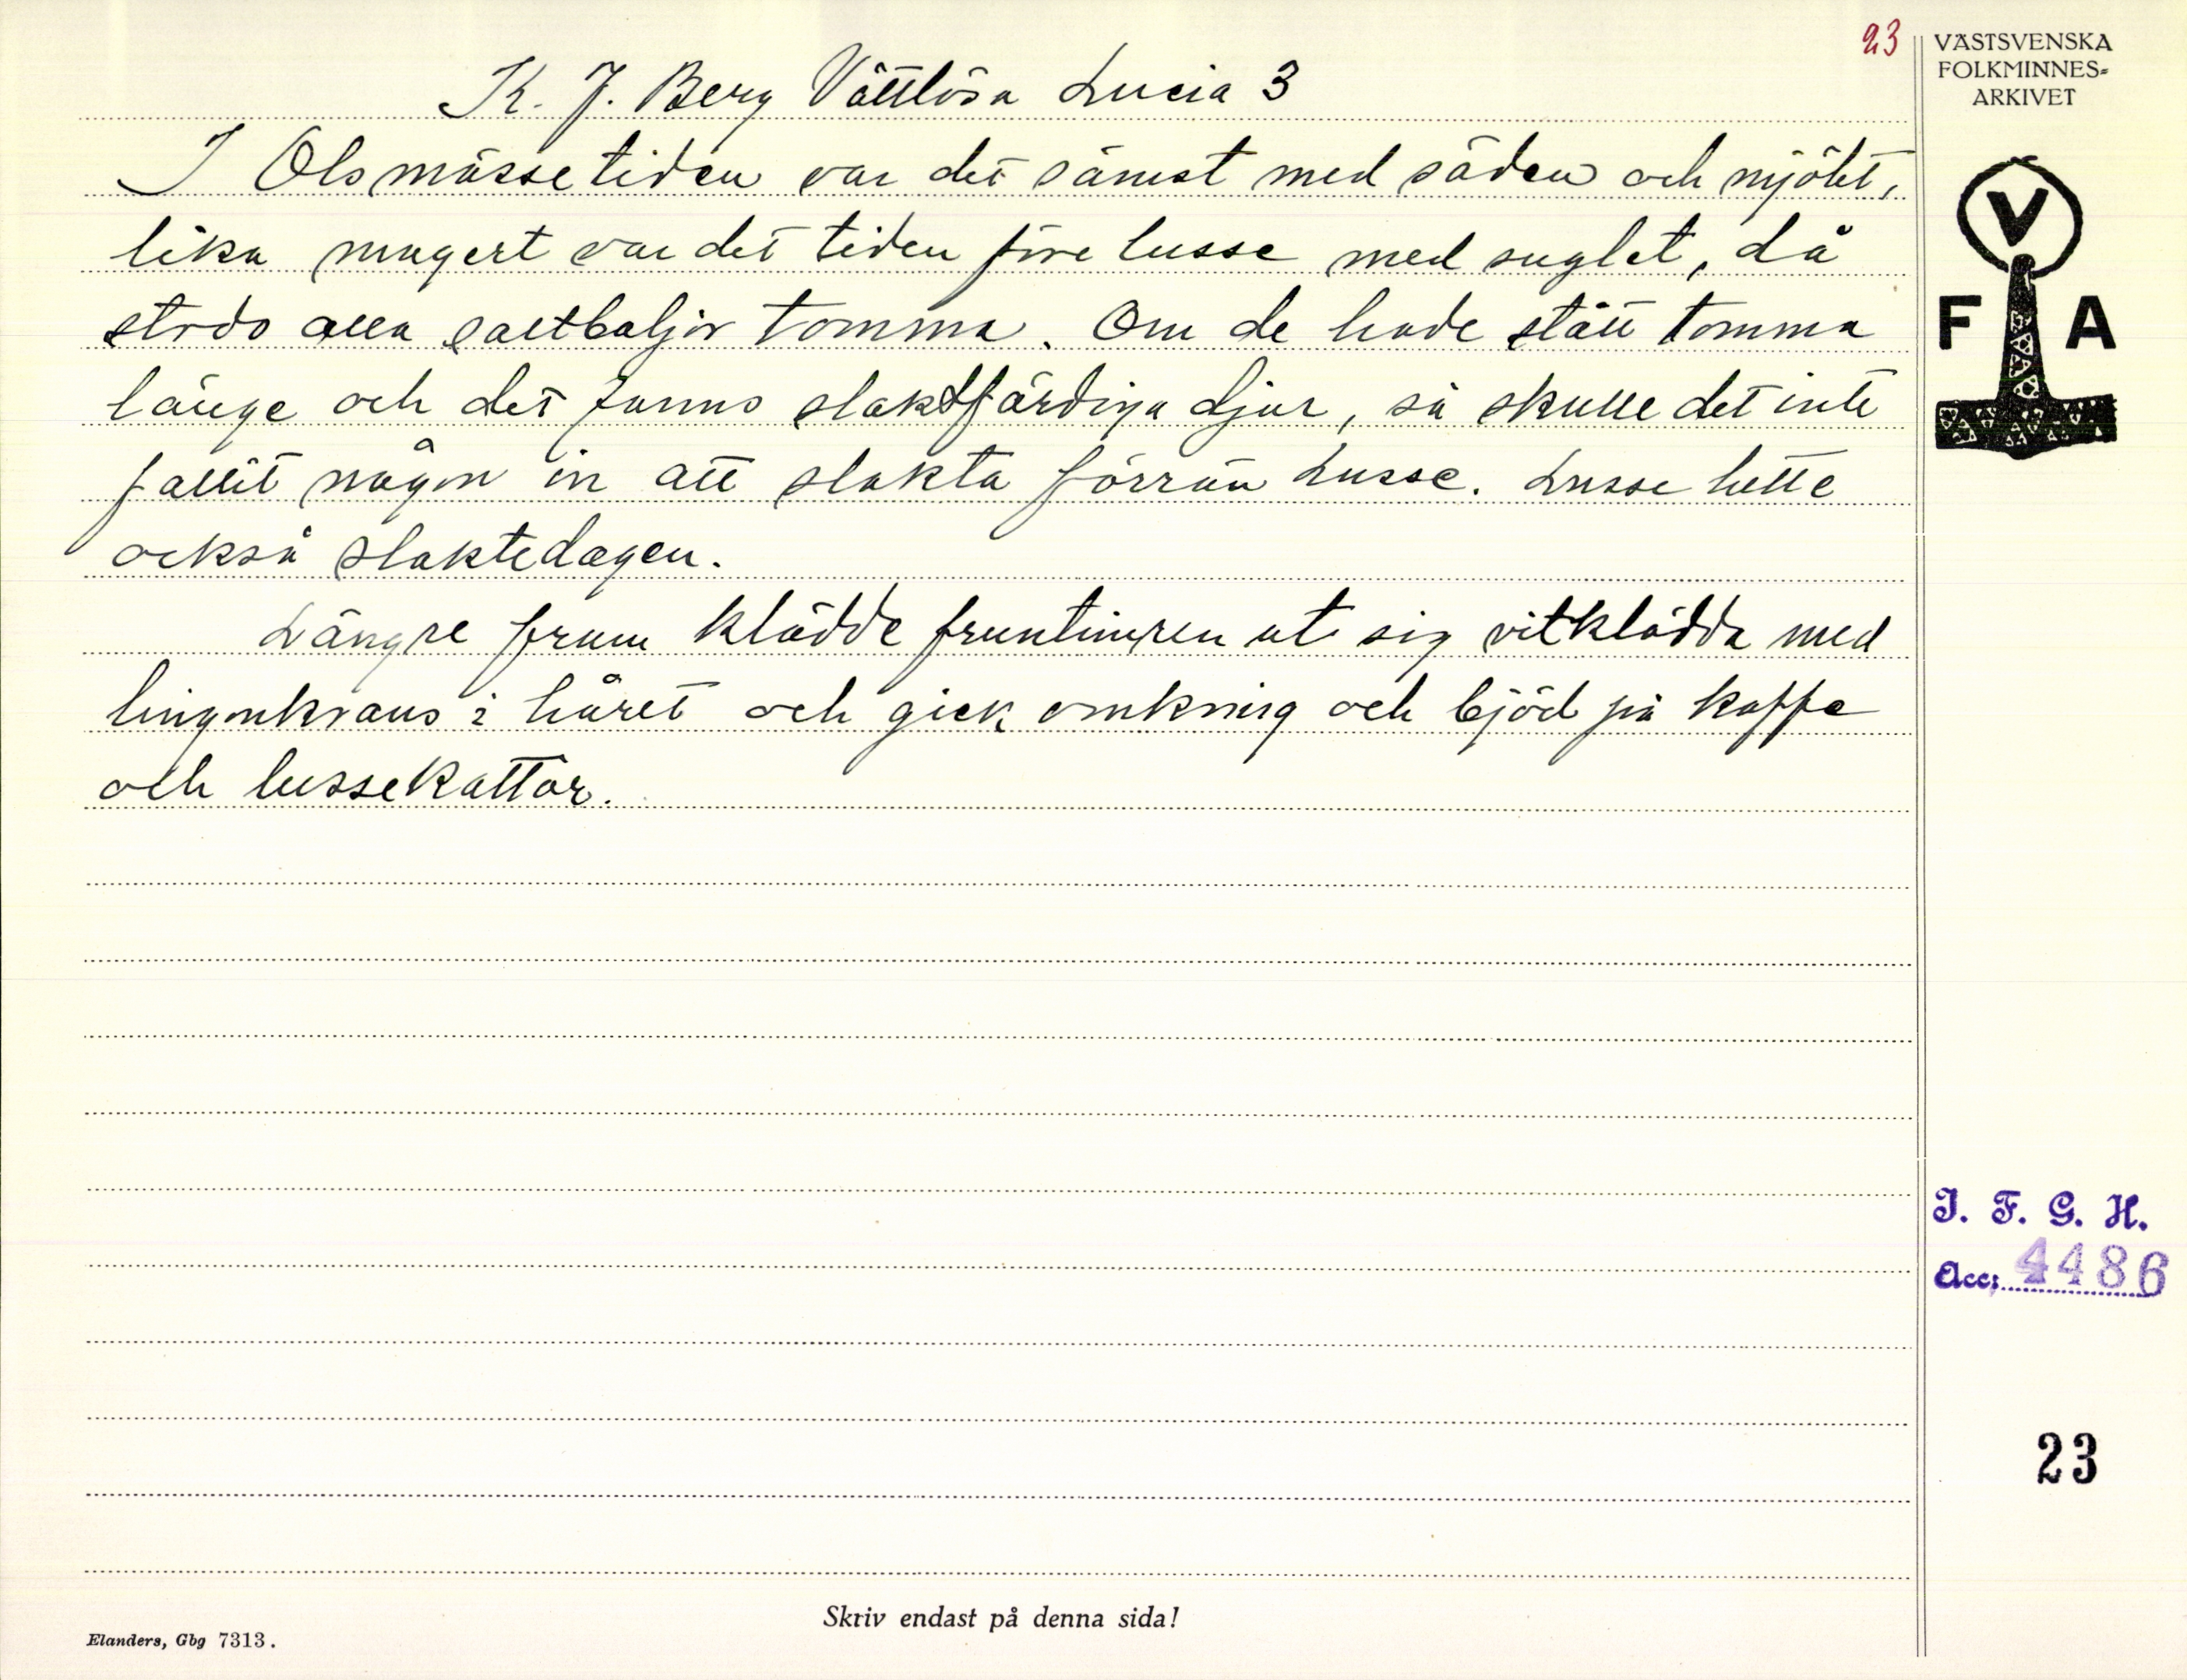 23
VÄSTSVENSKA
FOLKMINNES-
ARKIVET
K. J. Berg Vättlösa Lucia 3
I Olsmässetiden var det sämst med säden och mjölet,
lika magert var det tiden före lusse med suglet, då
stodo alla saltbaljor tomma. Om de hade stått tomma
länge och det fanns slaktfärdiga djur, så skulle det inte
fallit någon in att slakta förrän Lusse. Lusse hette
också slaktedagen.
Längre fram klädde fruntimren ut sig vitklädda med
lingonkrans i håret och gick omkring och bjöd på kaffe
och lussekattor.
V
F A
I. F. G. H.
Acc: 4486
23
Skriv endast på denna sida!
Elanders, Gbg 7313.